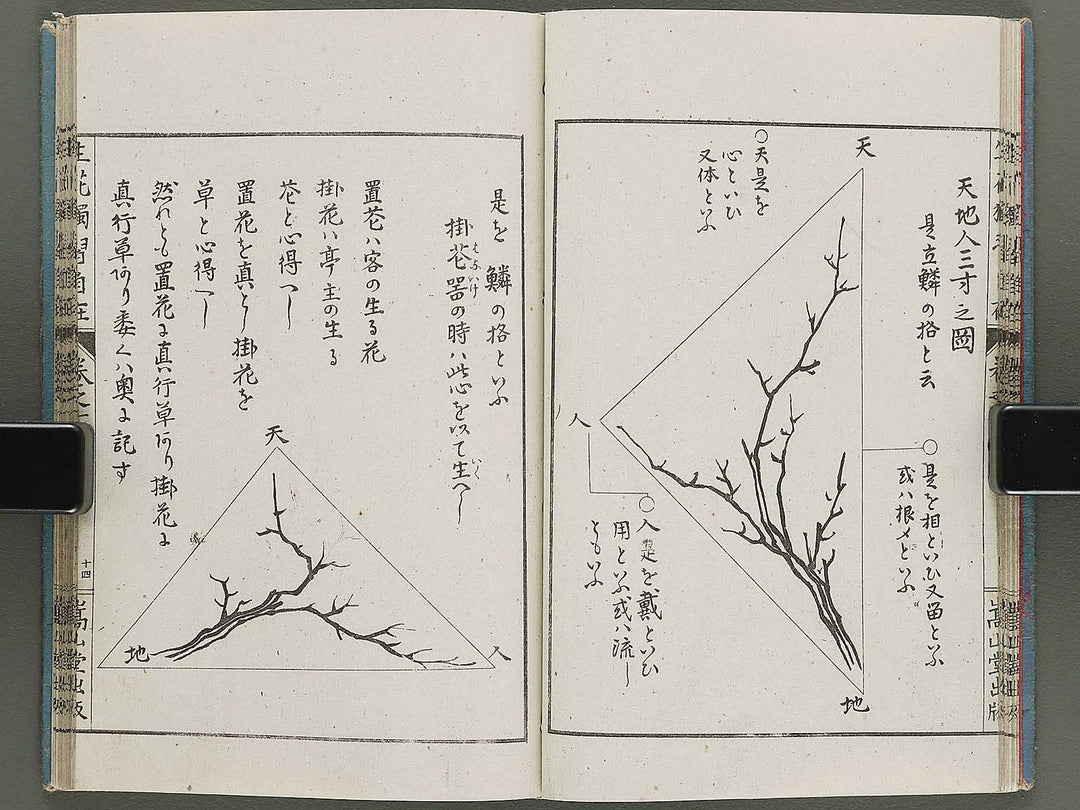 天地人三寸之圖
是立鱗の格と云
○是を相といひ又留といふ
或ハ根〆といふ
天
地
人
○天是を
心といひ
又体といふ
○人是を戴といひ
用といふ或ハ流し
ともいふ
是を鱗の格といふ
掛花器の時ハ此心を以て生へし
はないけ
いく
置花ハ客の生る花
掛花ハ亭主の生る
花と心得へし
置花を真とし掛花を
草と心得へし
然れとも置花に真行草あり掛花に
真行草あり委くハ奥に記す
天
地
人
十四
嵩山堂出版